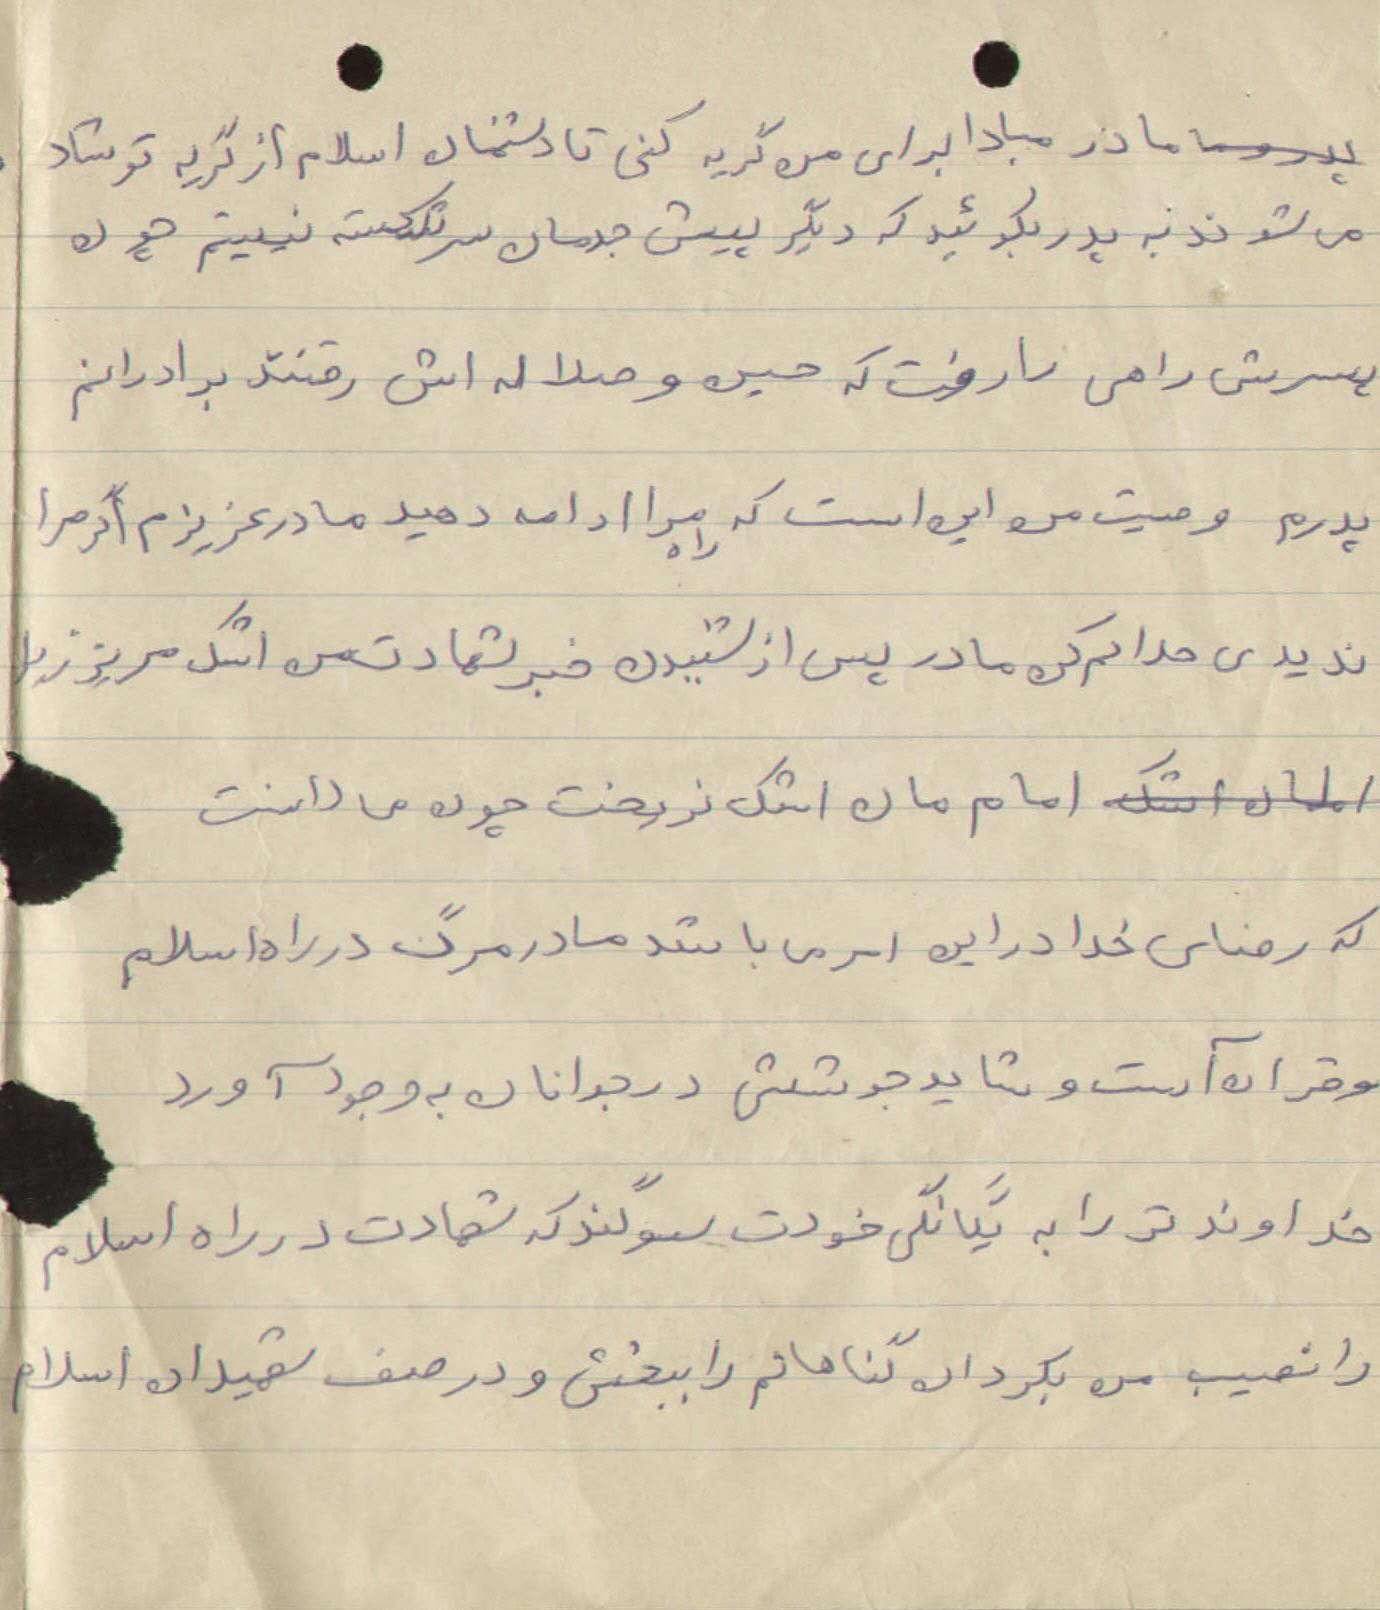 مادر مبادا برای من گریه کنی تا دشمنان اسلام از گریه تو شاد
می شوند به پدر بگوئید که دیگر پیش جدمان سرشکسته نیستم چون
پسرش راهی را رفت که حسین و سلاله اش رفتند برادرانم
پدرم وصیت من این است که راه مرا ادامه دهید مادر عزیزم اگر مرا
ندیدی حلالم کن مادر پس از شنیدن خبر شهادت من اشک مریز زیرا
امام مان اشک نریخت چون می دانست
که رضای خدا در این امر می باشد مادر مرگ در راه اسلام
و قران است و شاید جوششی در جوانان به وجود آورد
خداوند تو را به یگانگی خودت سوگند که شهادت در راه اسلام
را نصیب من بگردان گناهانم را ببخش و در صف شهیدان اسلام